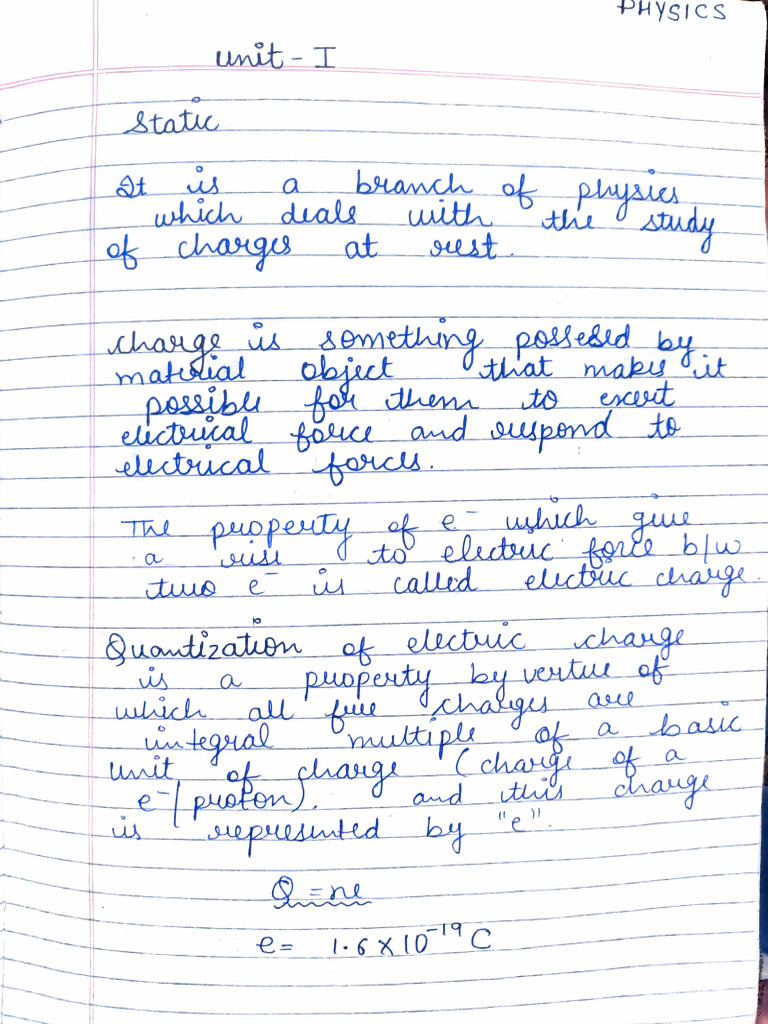 PHYSICS
Unit - I
Static
It is a branch of physics
which deals with the study
of charges at rest.
Charge is something possesed by
material object that makes it
possible for them to exert
electrical force and respond to
electrical forces.
The property of e⁻ which give
a rise to electric force b/w
two e⁻ is called electric charge.
Quantization of electric charge
is a property by vertue of
which all free charges are
integral multiple of a basic
unit of charge (charge of a
e⁻/proton). and this charge
is represented by "e".
Q = ne
e = 1.6 × 10⁻¹⁹ C